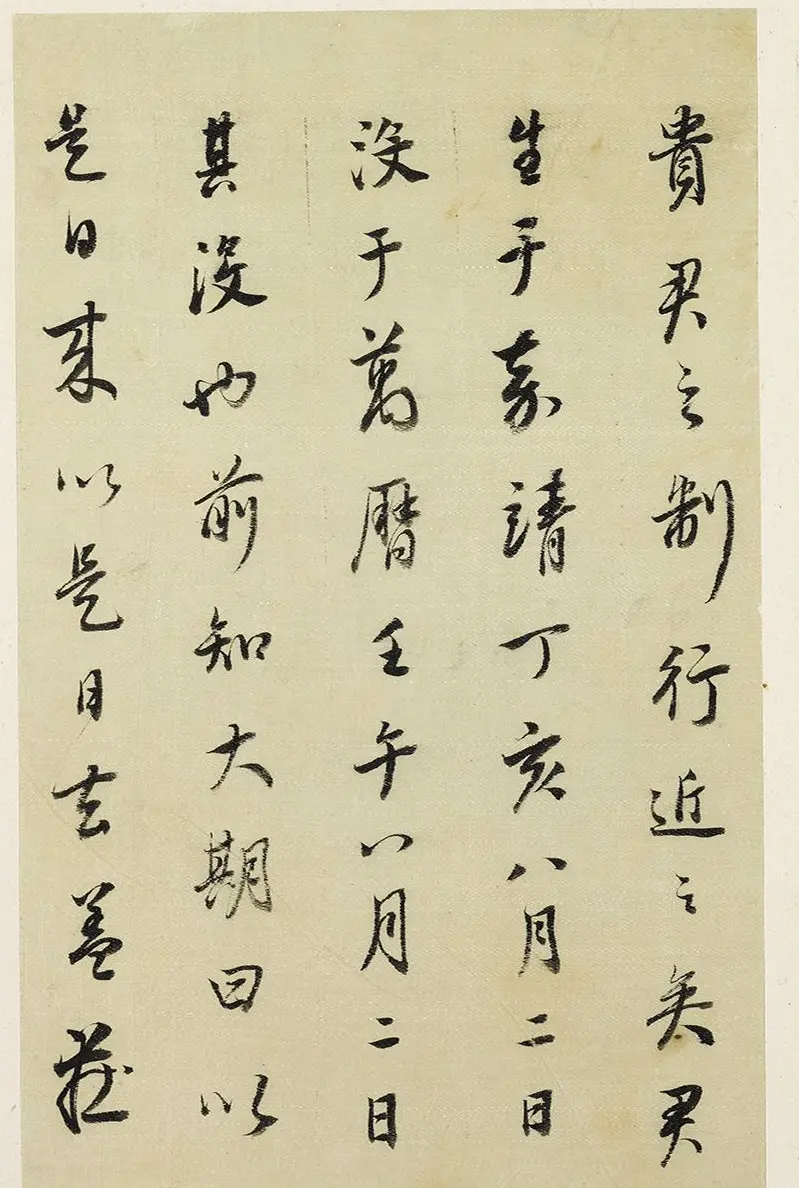 貴君之制行近之矣君
生于嘉靖丁亥八月二日
沒于萬曆壬午八月二日
其沒也前知大期曰以
是日來以是日去蓋莊